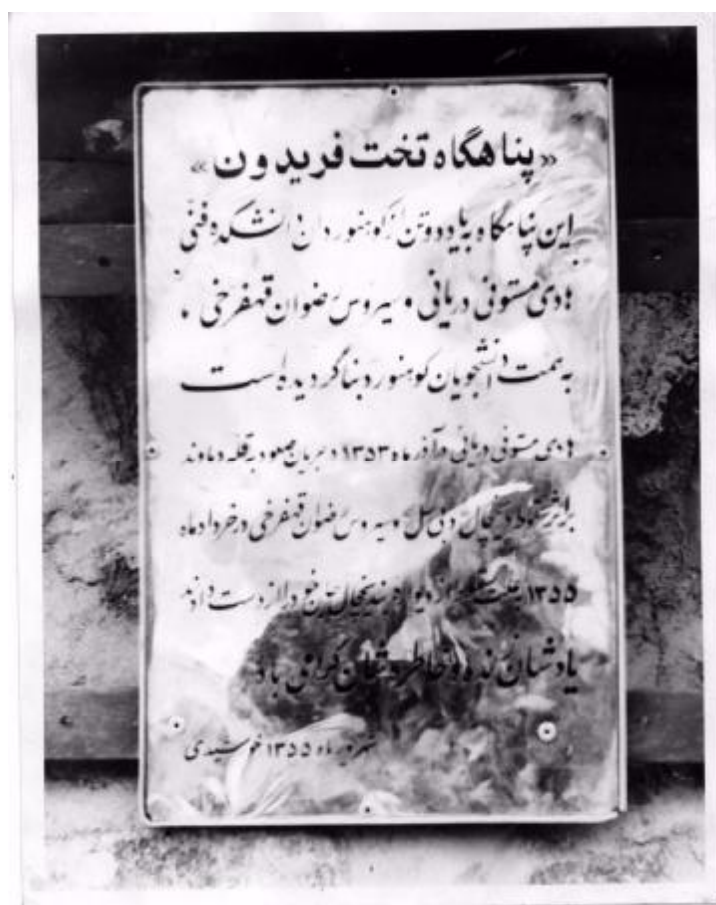 «پناهگاه تخت فریدون»
این پناهگاه بیاد دو تن از کوهنوردان دانشکده فنی
هادی مستوفی دریانی و سیروس رضوان قهفرخی
به همت دانشجویان کوهنورد بنا گردیده است
هادی مستوفی دریانی در آذر ماه ۱۳۵۳ در جریان صعود به قله دماوند
در یخچال دبی سل و سیروس رضوان قهفرخی در خرداد ماه
۱۳۵۵ بعلت از دیواره یخچال از دست دادند
یادشان زنده و خاطره شان گرامی باد
شهریور ماه ۱۳۵۵ خورشیدی